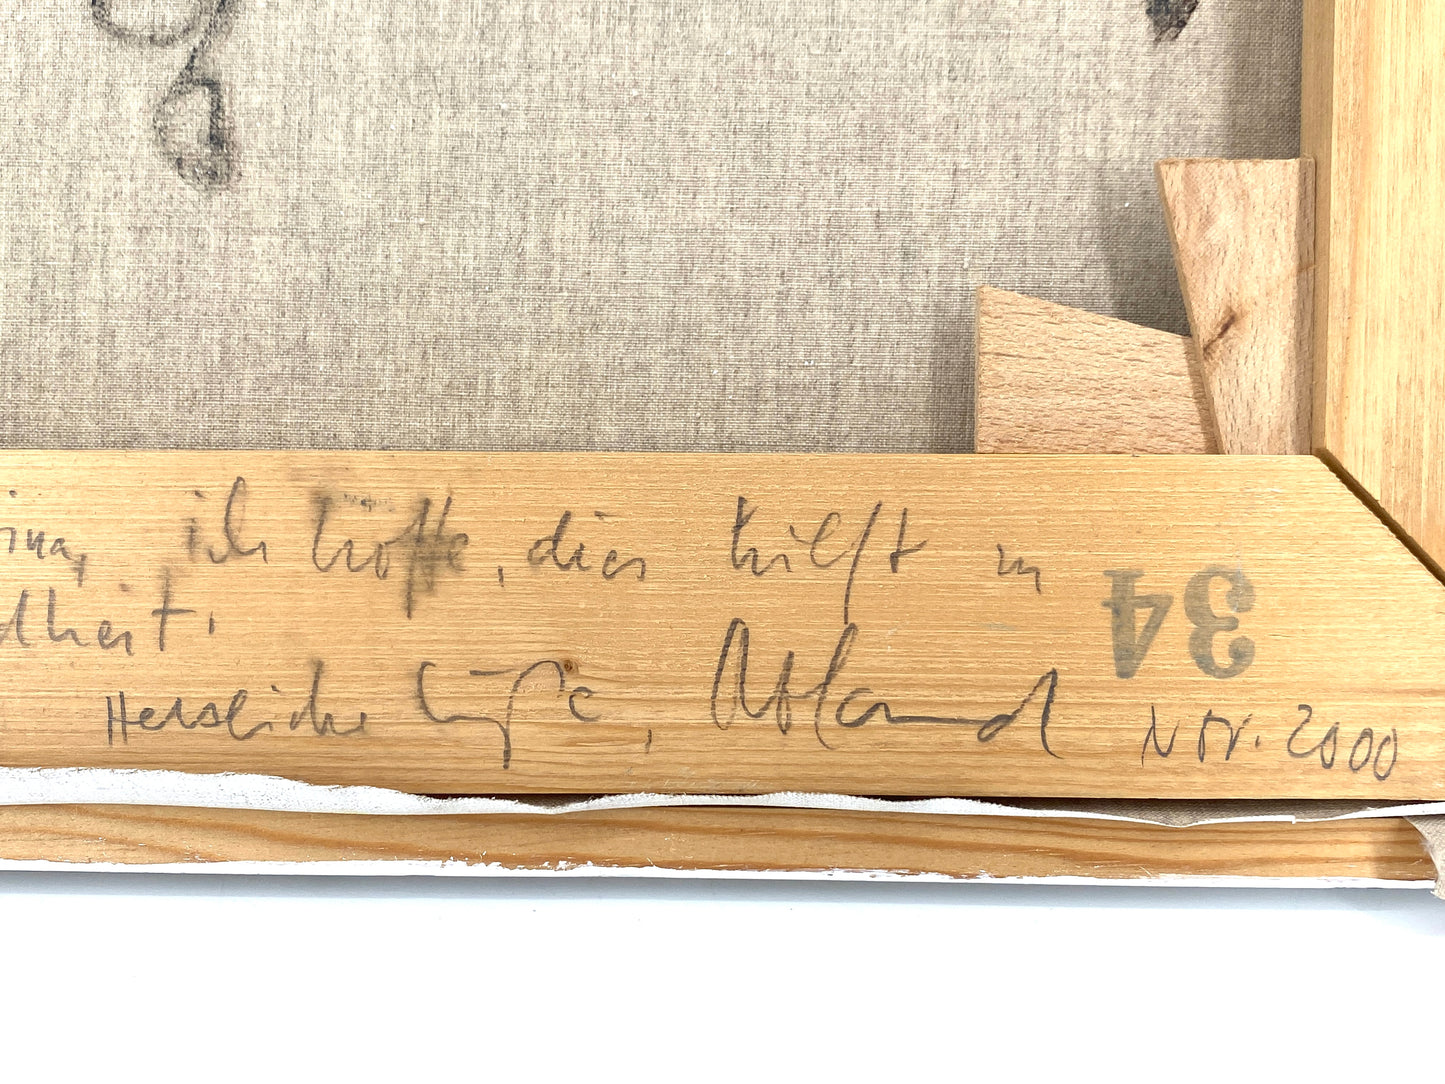 ina, ich hoffe, dies hilft zu
dheit.
Herzliche Grüße, Roland Nov. 2000
34